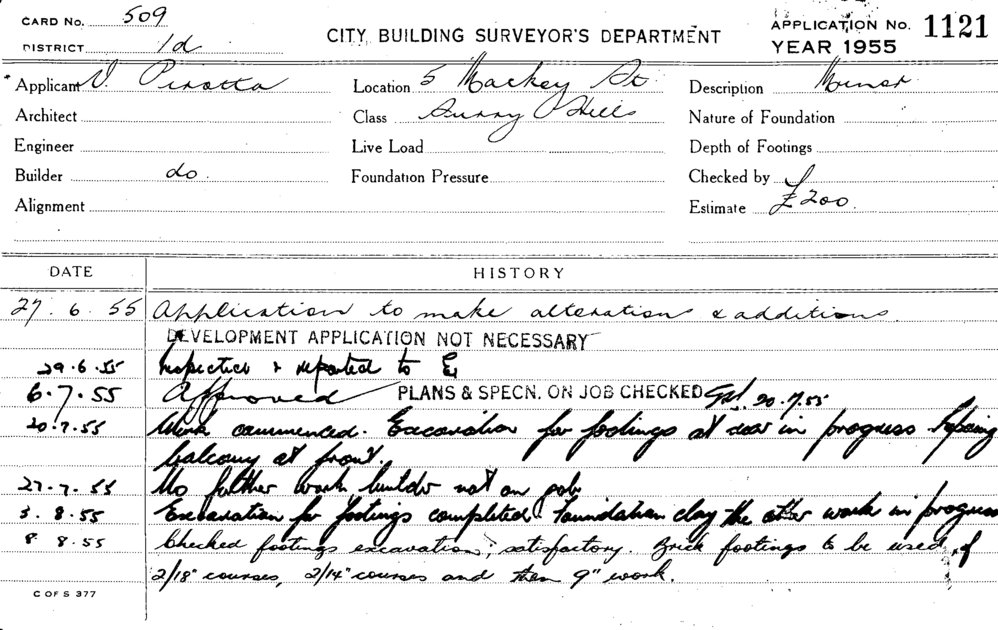 CARD No. 509
DISTRICT 1d
CITY BUILDING SURVEYOR'S DEPARTMENT
APPLICATION No. 1121
YEAR 1955
Applicant V. Pirotta
Location 5 Mackey St
Description Minor
Architect
Class Surry Hills
Nature of Foundation
Engineer
Live Load
Depth of Footings
Builder do.
Foundation Pressure
Checked by
Alignment
Estimate £200
DATE HISTORY
27. 6. 55 Application to make alterations & additions.
DEVELOPMENT APPLICATION NOT NECESSARY
29.6.55 Inspected & reported to
6.7.55 Approved PLANS & SPECN. ON JOB CHECKED 20.7.55
20.7.55 Work commenced. Excavation for footings at rear in progress
balcony at front.
27.7.55 No further work, builder not on job
3. 8.55 Excavation for footings completed. Foundation clay the other work in progress
8 8.55 Checked footings excavation; satisfactory. Brick footings to be used, of
2/18" courses, 2/14" courses and then 9" work.
C OF S 377